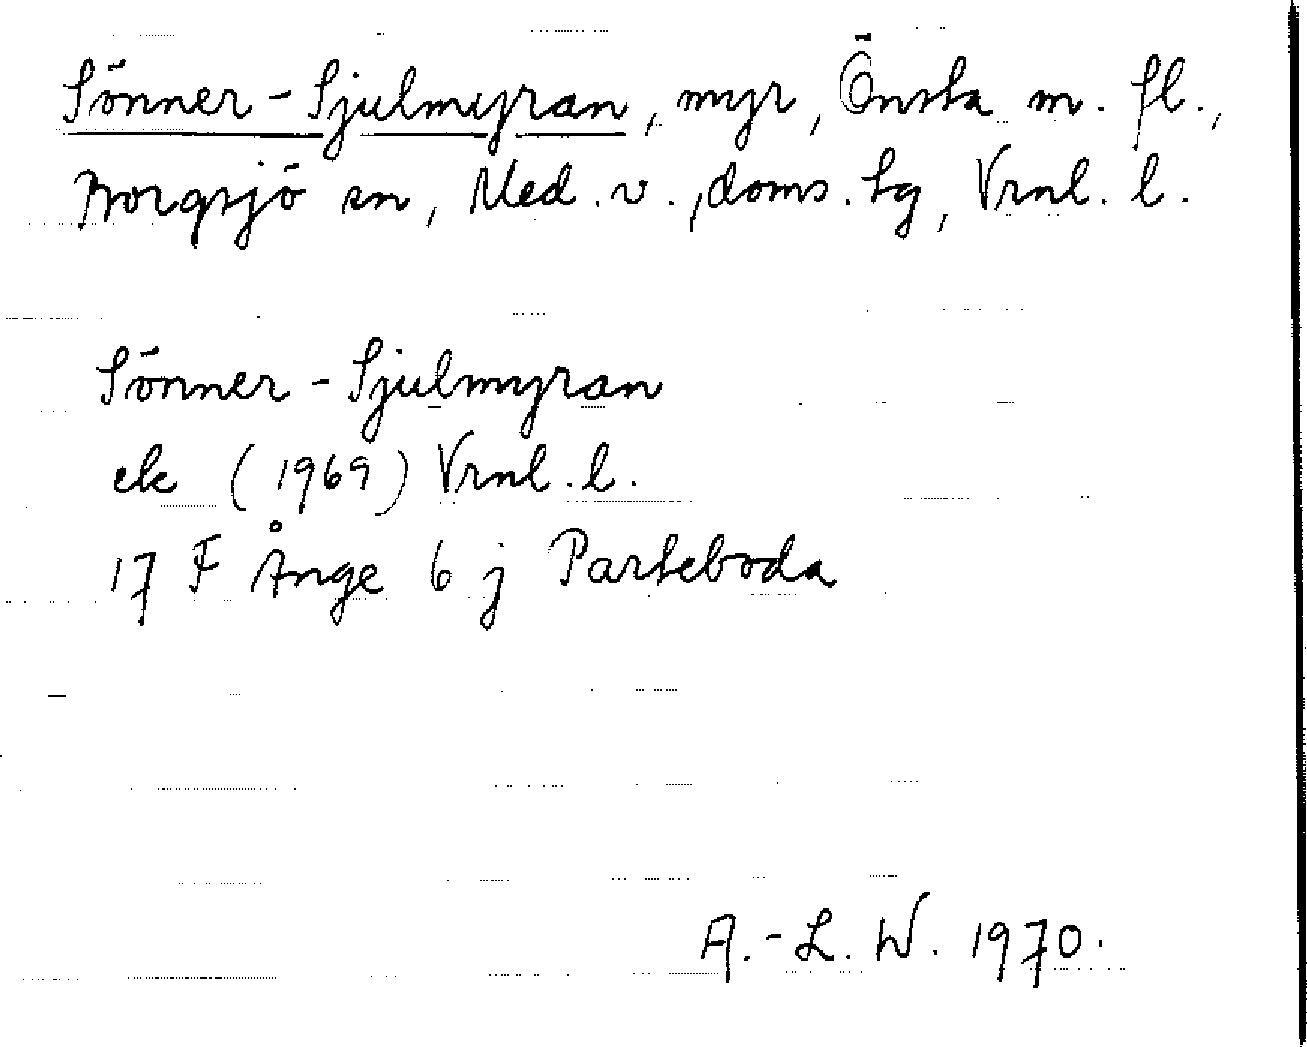 Sönner-Sjulmyran, myr, Önsta m. fl.,
Borgsjö sn, Med. v., doms. tg, Vrnl. l.
Sönner-Sjulmyran
ek (1969) Vrnl. l.
17 F Ånge 6 j Parteboda
A.-L. W. 1970.